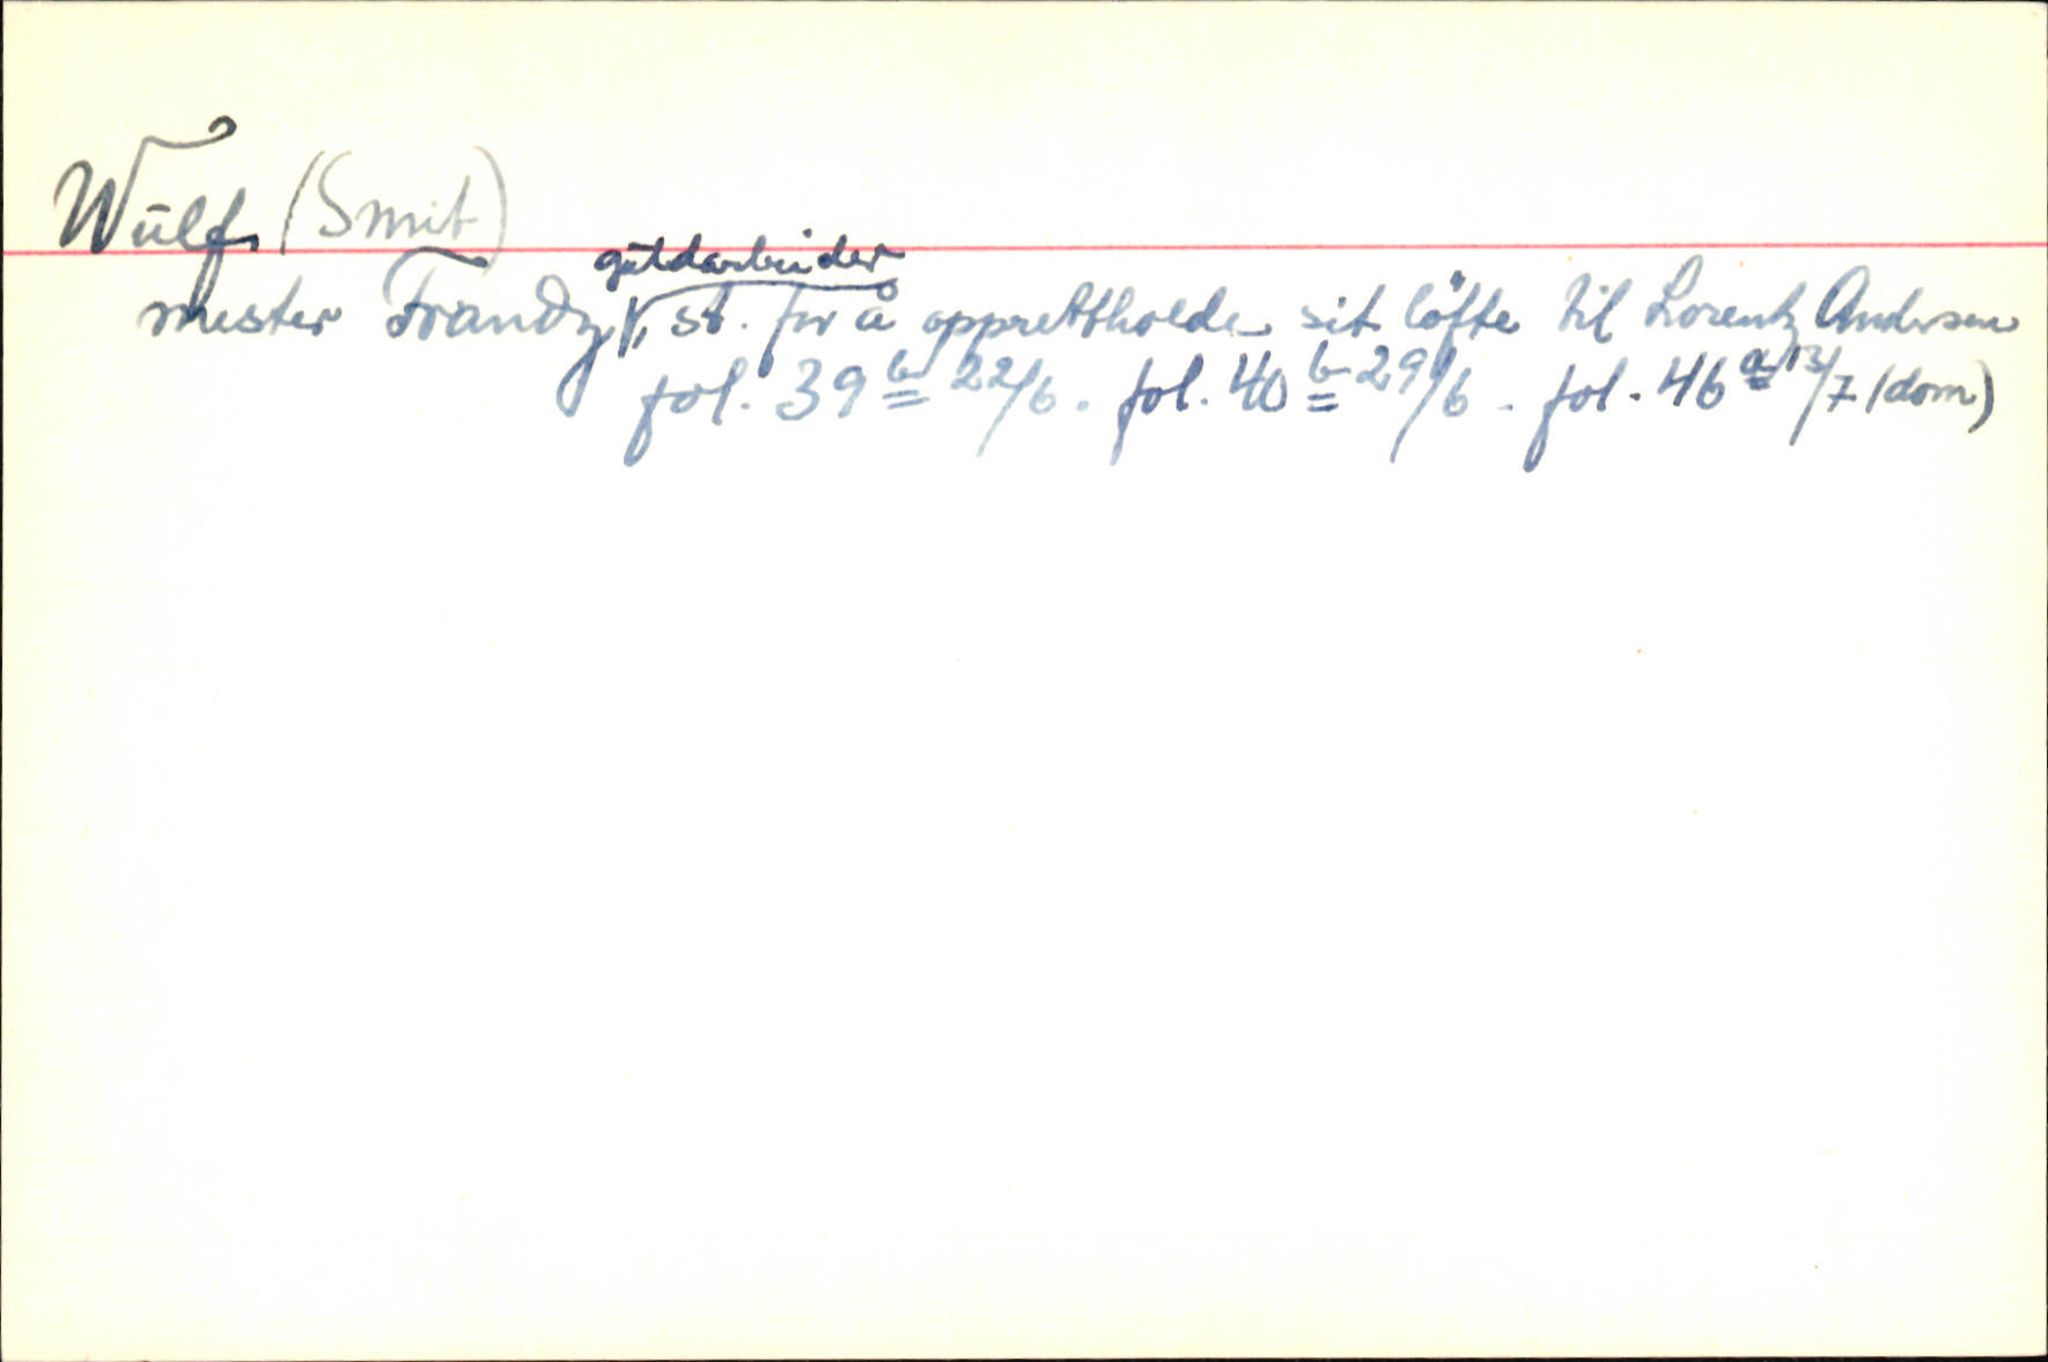 Wulf (Smit)
guldarbeider
mester Frandz, st. for å opprettholde sit löfte til Lorentz Andersen
fol. 39 b 22/6. fol. 40 b 29/6. fol. 46 a 13/7 (dom)